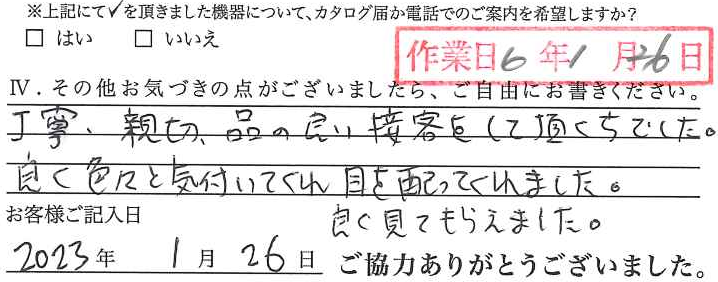 ※上記にて✓を頂きました機器について、カタログ届か電話でのご案内を希望しますか?
□ はい □ いいえ
作業日 6年 1月 26日
Ⅳ．その他お気づきの点がございましたら、ご自由にお書きください。
丁寧、親切、品の良い接客をして頂くちでした。
良く色々と気付いてくれ 目を配ってくれました。
良く見てもらえました。
お客様ご記入日
2023年 1月 26日 ご協力ありがとうございました。